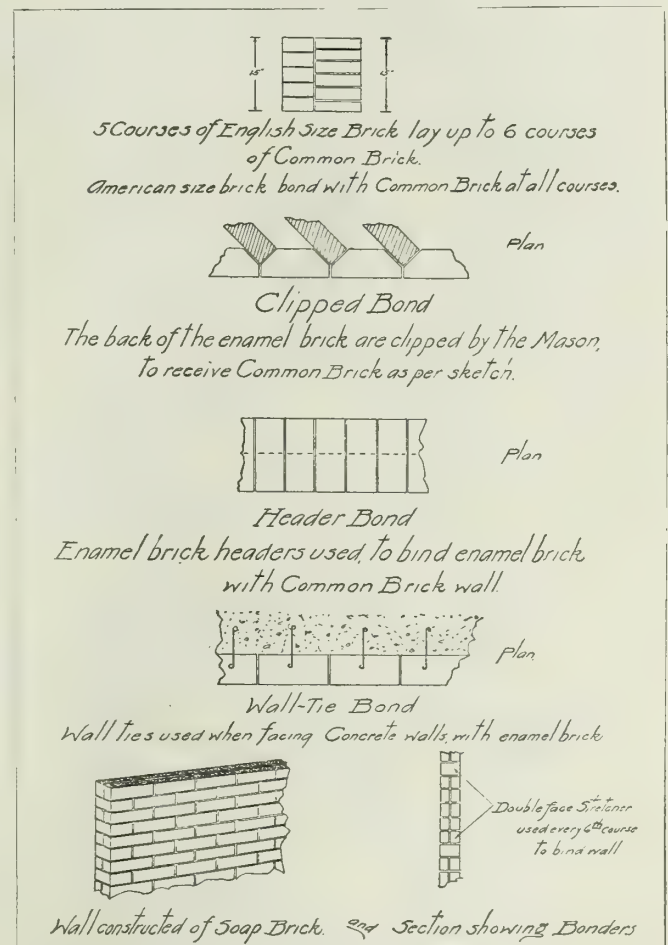 15" 15"
5 Courses of English Size Brick lay up to 6 courses
of Common Brick.
American size brick bond with Common Brick at all courses.
Plan
Clipped Bond
The back of the enamel brick are clipped by the Mason,
to receive Common Brick as per sketch.
Plan
Header Bond
Enamel brick headers used, to bind enamel brick
with Common Brick wall.
Plan
Wall-Tie Bond
Wall ties used when facing Concrete walls, with enamel brick
Double face Stretcher
used every 6th course
to bind wall
Wall constructed of Soap Brick. and Section showing Bonders